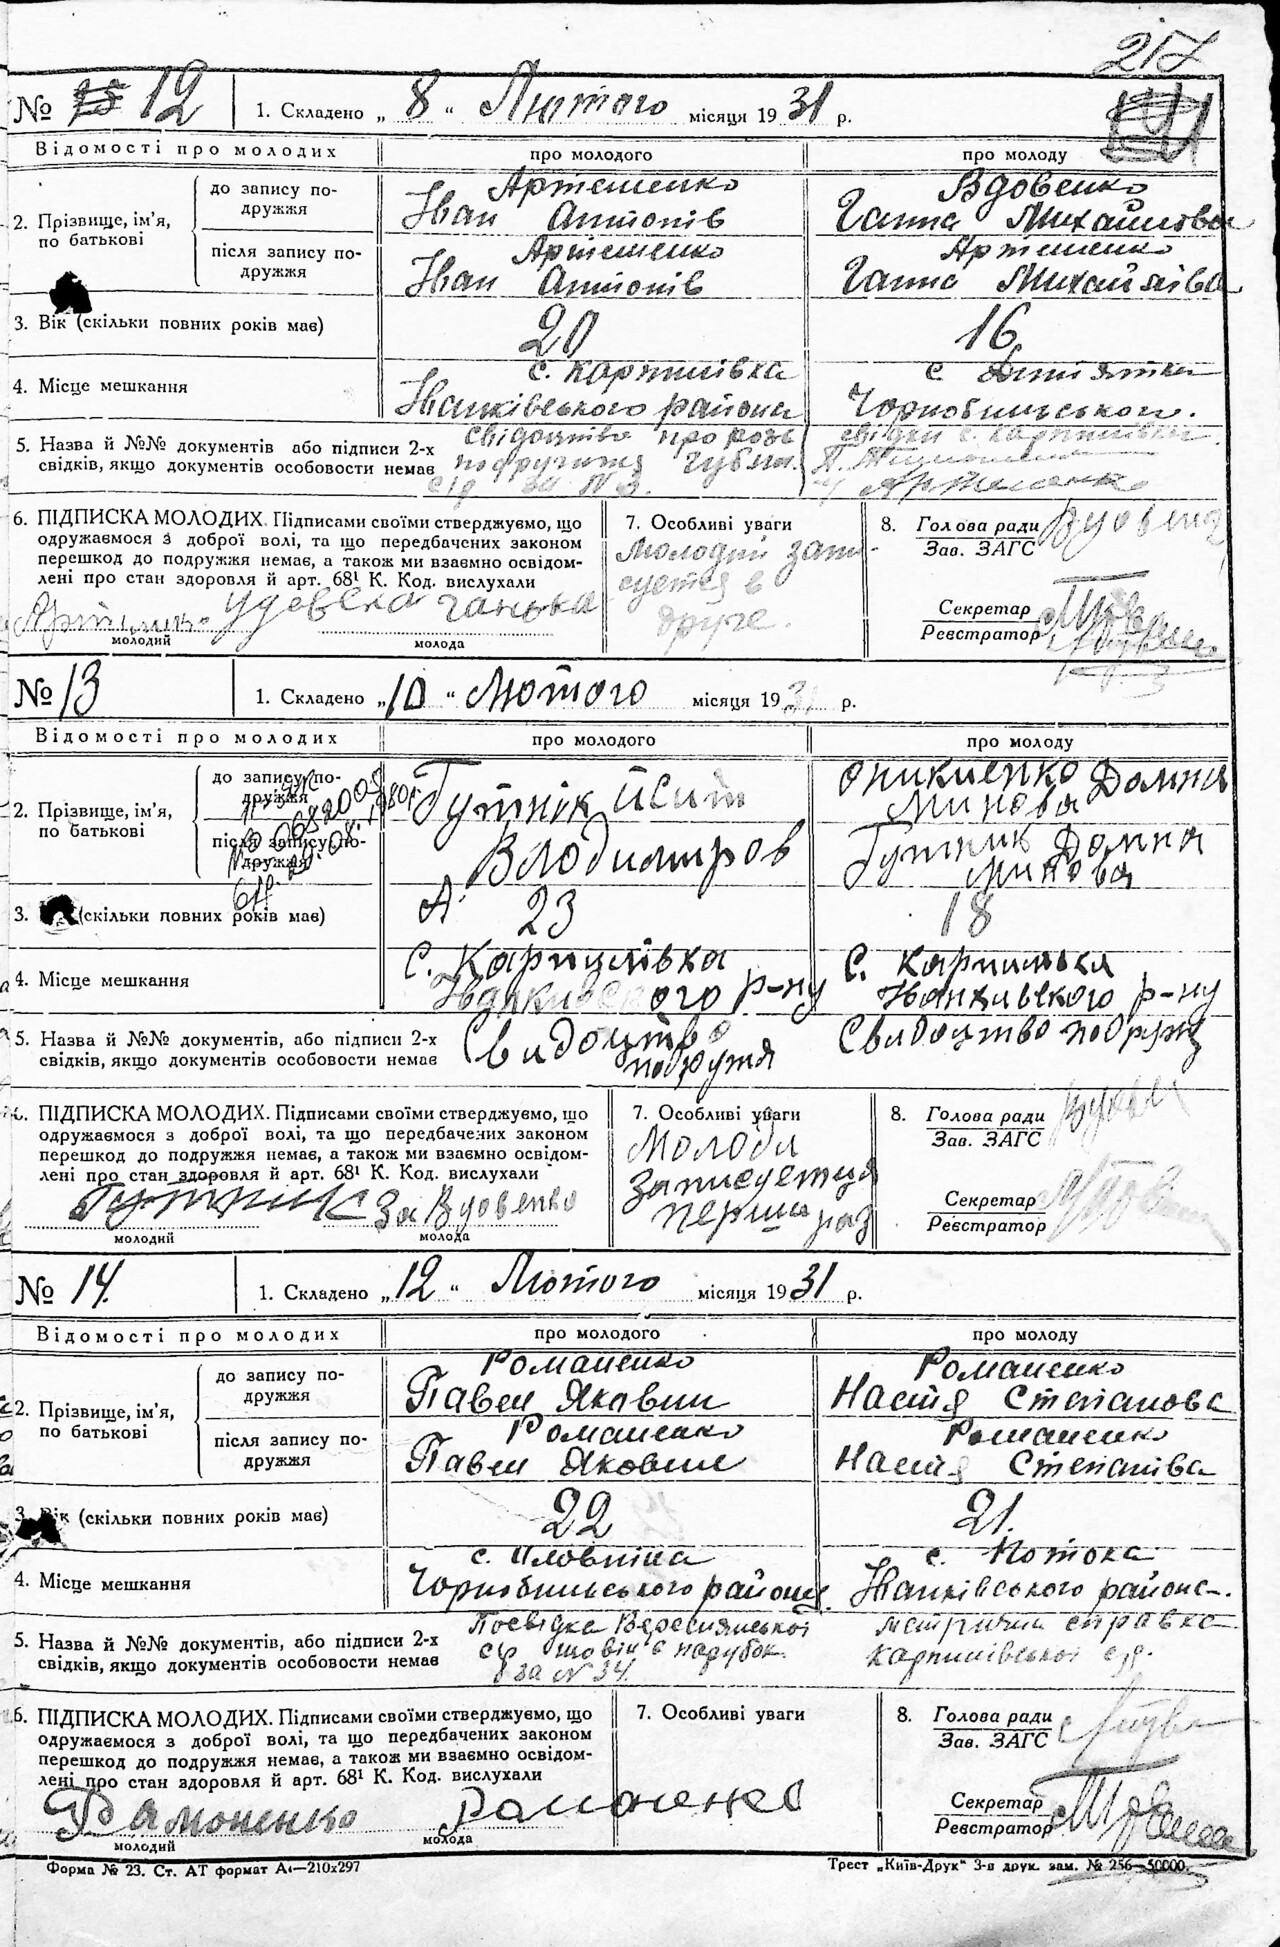 217
№ 12 1. Складено „ 8 “ Лютого місяця 19 31 р.
Відомості про молодих про молодого про молоду
2. Прізвище, ім’я, по батькові
до запису по-
дружжя
Артеменко
Іван Антонів
Вдовенко
Ганна Михайлова
після запису по-
дружжя
Артеменко
Іван Антонів
Артеменко
Ганна Михайлівa
3. Вік (скільки повних років має) 20 16
4. Місце мешкання
с. Карпилівка
Іванківського района
с.
Чорнобильського.
5. Назва й №№ документів або підписи 2-х
свідків, якщо документів особовости немає
свідоцтво про розв
подружжя
свідки с. Карпилівки
Артеменко
6. ПІДПИСКА МОЛОДИХ. Підписами своїми стверджуємо, що
одружаємося з доброї волі, та що передбачених законом
перешкод до подружжя немає, а також ми взаємно освідом-
лені про стан здоровля й арт. 68¹ К. Код. вислухали
удовєнка ганька
молодий молода
7. Особливі уваги
Молодий запи-
суется в
друге.
8. Голова ради
Зав. ЗАГС
Секретар
Реєстратор
№ 13 1. Складено „ 10 “ Лютого місяця 19 31 р.
Відомості про молодих про молодого про молоду
2. Прізвище, ім’я,
по батькові
до запису по-
дружжя
після запису по-
дружжя
Гутнік
Володимиров
Оникиенко Домна
Минова
Гутник Домна
Минова
3. (скільки повних років має) 23 18
4. Місце мешкання
с. Карпилівка
Іванкивского р-ну
с. Карпилька
Иванкивского р-ну
5. Назва й №№ документів, або підписи 2-х
свідків, якщо документів особовости немає
Свидоцтво
подружя
Свидоцтво подруж
6. ПІДПИСКА МОЛОДИХ. Підписами своїми стверджуємо, що
одружаємося з доброї волі, та що передбачених законом
перешкод до подружжя немає, а також ми взаємно освідом-
лені про стан здоровля й арт. 68¹ К. Код. вислухали
Гутник За Вдовенко
молодий молода
7. Особливі уваги
Молоди
записуетця
перши раз
8. Голова ради
Зав. ЗАГС
Секретар
Реєстратор
№ 14. 1. Складено „ 12 “ Лютого місяця 19 31 р.
Відомості про молодих про молодого про молоду
2. Прізвище, ім’я,
по батькові
до запису по-
дружжя
Романенко
Павел Яковин
Романенко
Настя Степанова
після запису по-
дружжя
Романенко
Павел Яковин
Романенко
Настя Степанівa
3. Вік (скільки повних років має) 22 21.
4. Місце мешкання
с.
Чорнобильського района.
с. Потока
Іванківського района.
5. Назва й №№ документів, або підписи 2-х
свідків, якщо документів особовости немає
Посвідка Вересnянської
с/р що він є парубок
за N 34.
метрична справка
Карпилівської с/р.
6. ПІДПИСКА МОЛОДИХ. Підписами своїми стверджуємо, що
одружаємося з доброї волі, та що передбачених законом
перешкод до подружжя немає, а також ми взаємно освідом-
лені про стан здоровля й арт. 68¹ К. Код. вислухали
Рамоненко Романенко
молодий молода
7. Особливі уваги
8. Голова ради
Зав. ЗАГС
Секретар
Реєстратор
Форма № 23. Ст. АТ формат А₄—210х297
Трест „Київ-Друк“ 3-я друк. зам. № 256—50000.